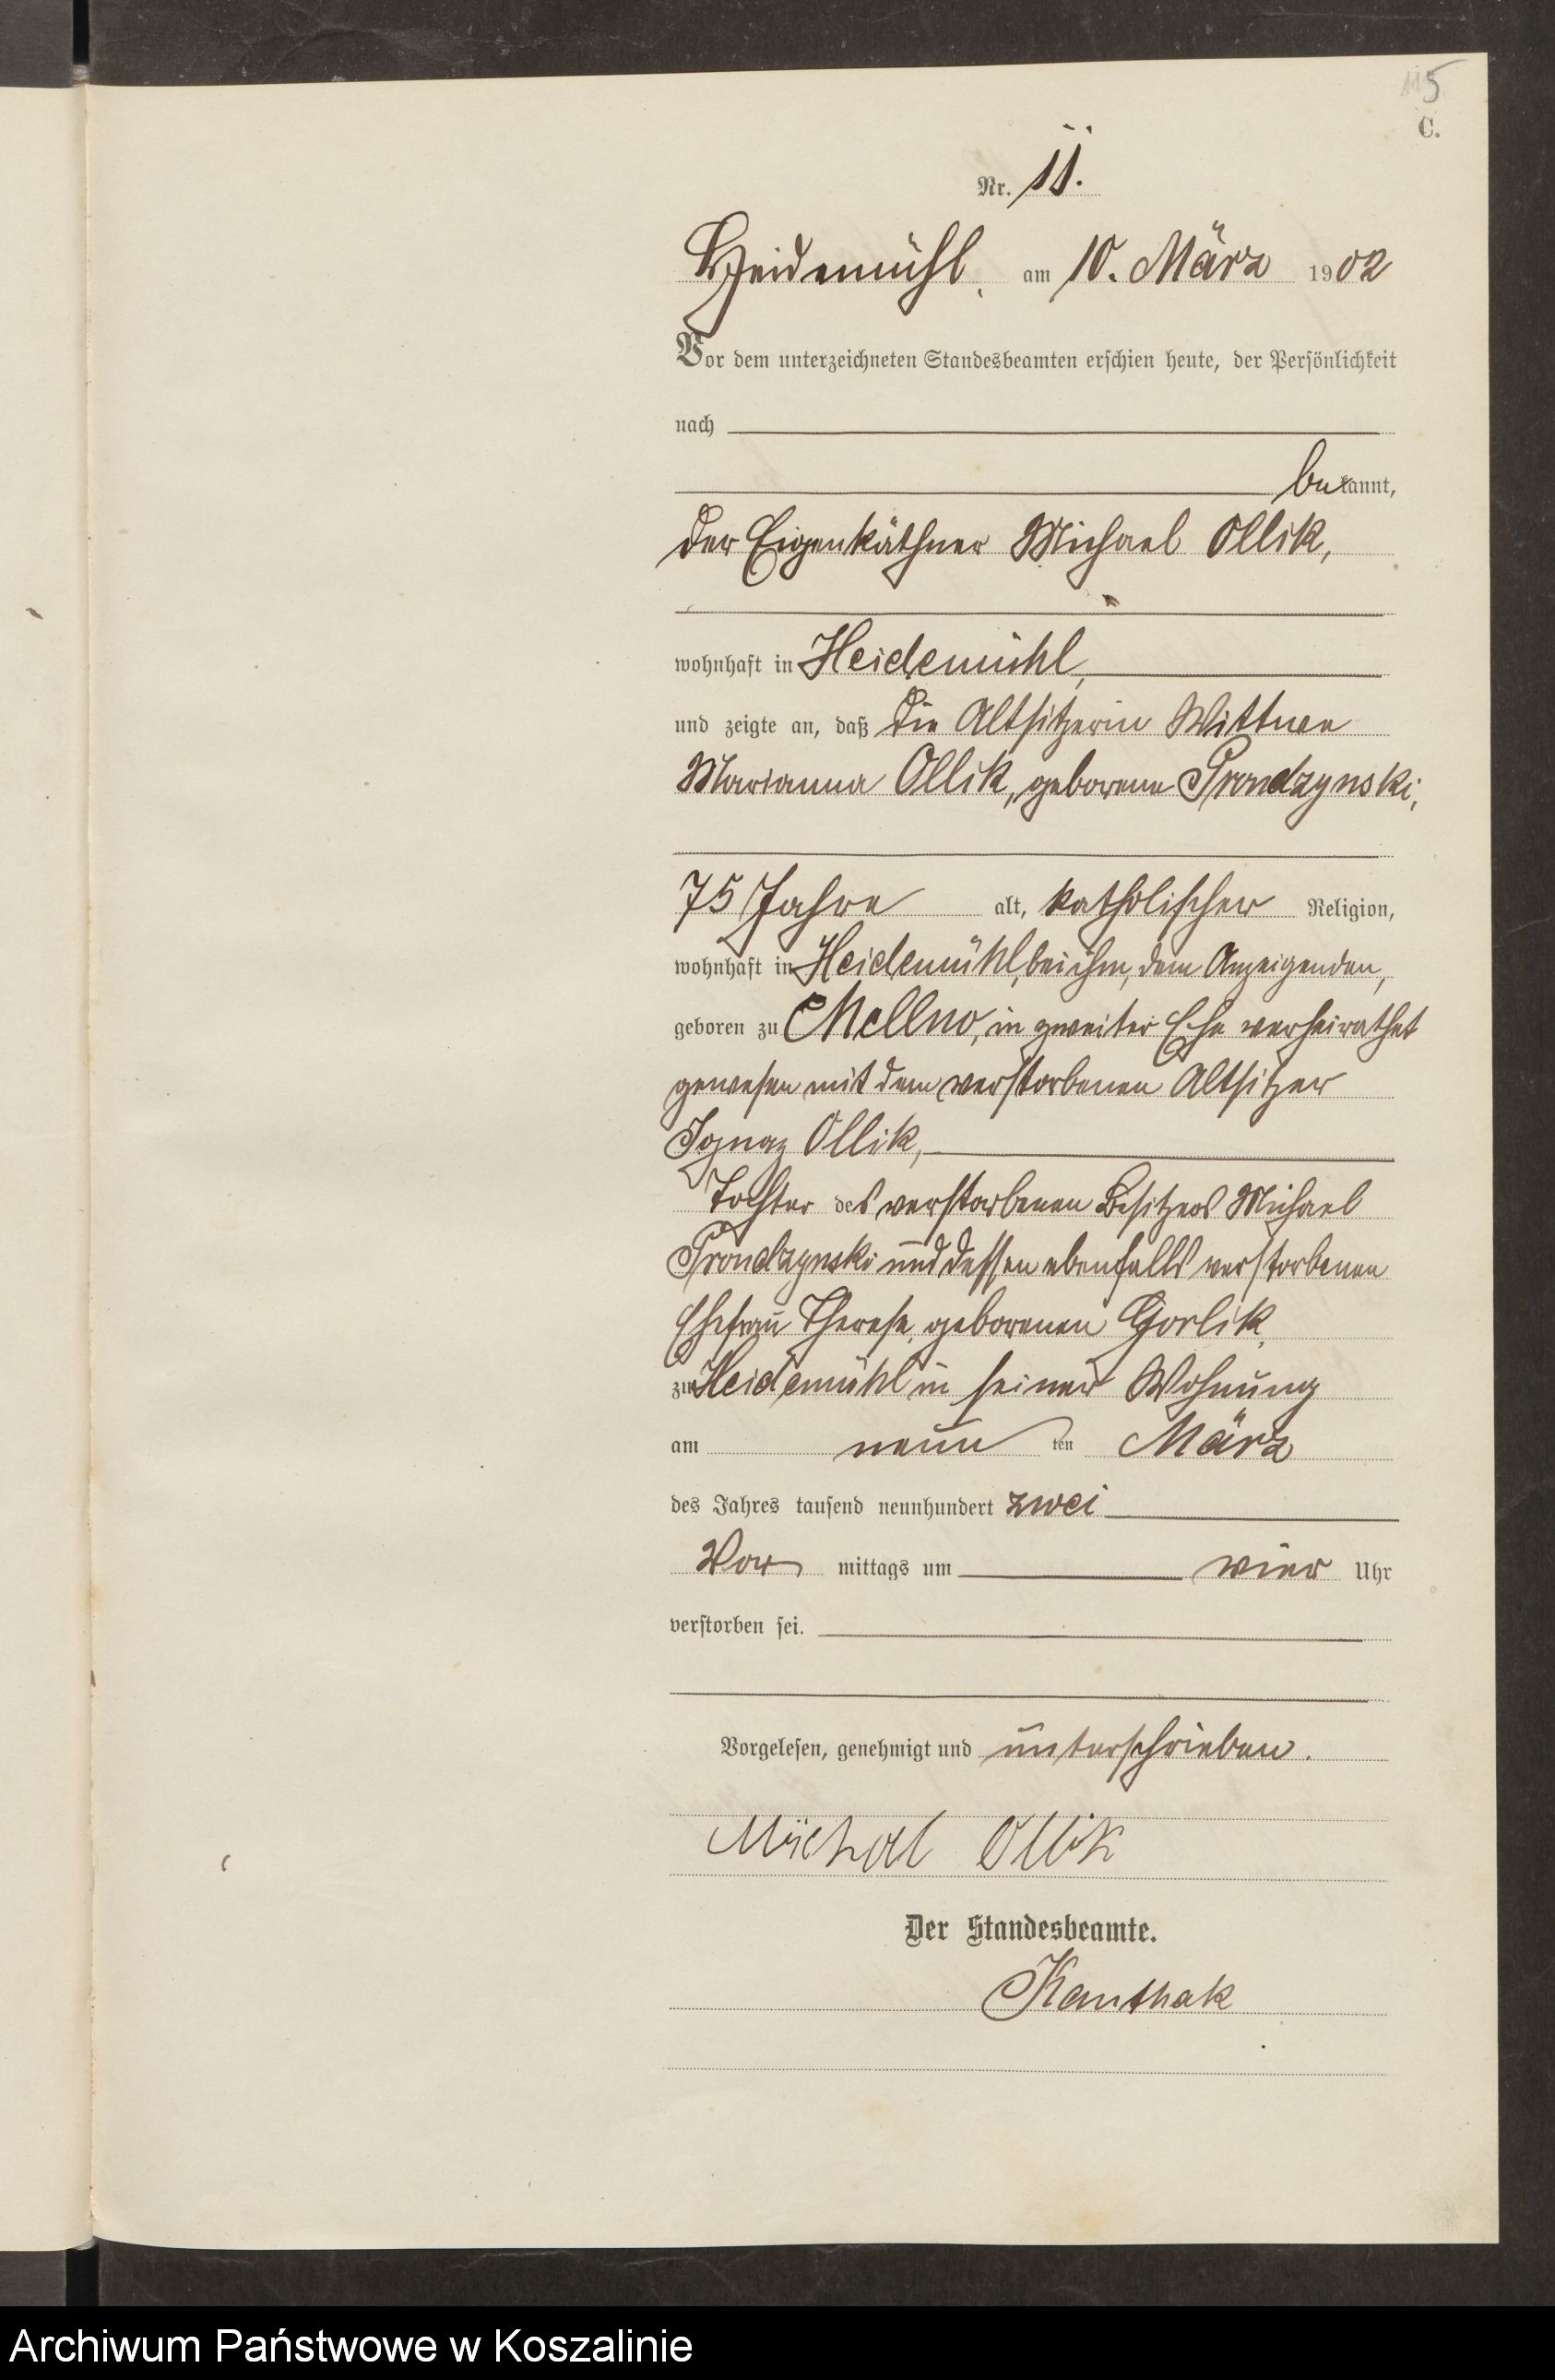 5
C.
Nr. 11.
Heidemühl, am 10. März 1902
Vor dem unterzeichneten Standesbeamten erschien heute, der Persönlichkeit
nach
bekannt,
der Eigenkäthner Michael Ollik,
wohnhaft in Heidemühl,
und zeigte an, daß die Altsitzerin Wittwe
Marianna Ollik, geborene Prondzynski,
75 Jahre alt, katholischer Religion,
wohnhaft in Heidemühl, bei ihm, dem Anzeigenden,
geboren zu Mellno, in zweiter Ehe verheirathet
gewesen mit dem verstorbenen Altsitzer
Ignaz Ollik,
Tochter des verstorbenen Besitzers Michael
Prondzynski und dessen ebenfalls verstorbenen
Ehefrau Therese, geborenen Gorlik,
zu Heidemühl in seiner Wohnung
am neunten März
des Jahres tausend neunhundert zwei
Vor mittags um vier Uhr
verstorben sei.
Vorgelesen, genehmigt und unterschrieben.
Michal Ollik
Der Standesbeamte.
Kanthak
Archiwum Państwowe w Koszalinie